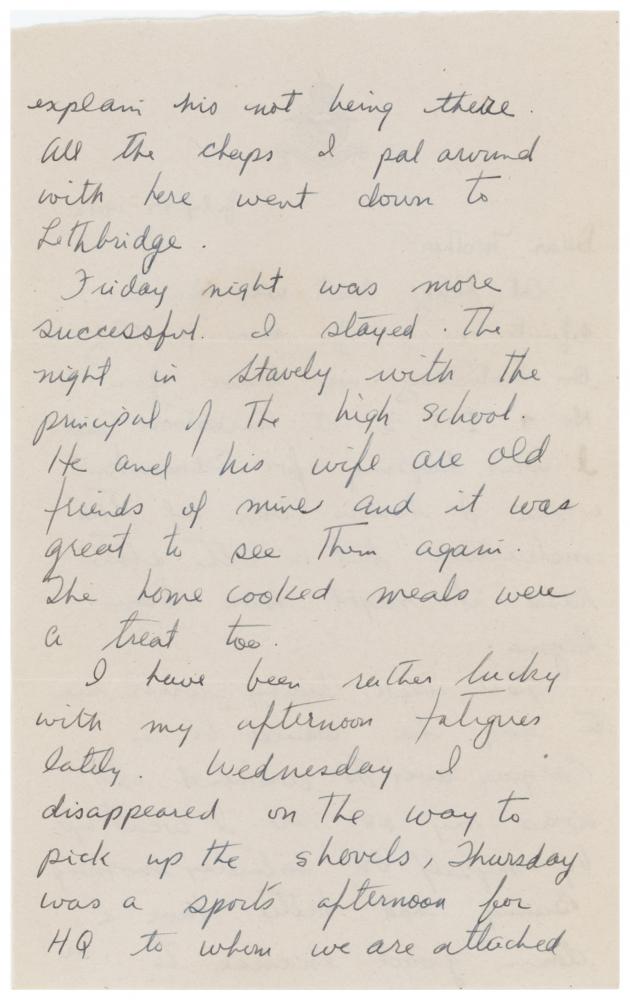 explain his not being there.
All the chaps I pal around
with here went down to
Lethbridge.
Friday night was more
successful. I stayed. The
night in Stavely with the
principal of the high school.
He and his wife are old
friends of mine and it was
great to see them again.
The home cooked meals were
a treat too.
I have been rather lucky
with my afternoon fatigues
lately. Wednesday I
disappeared on the way to
pick up the shovels, Thursday
was a sports afternoon for
HQ to whom we are attached